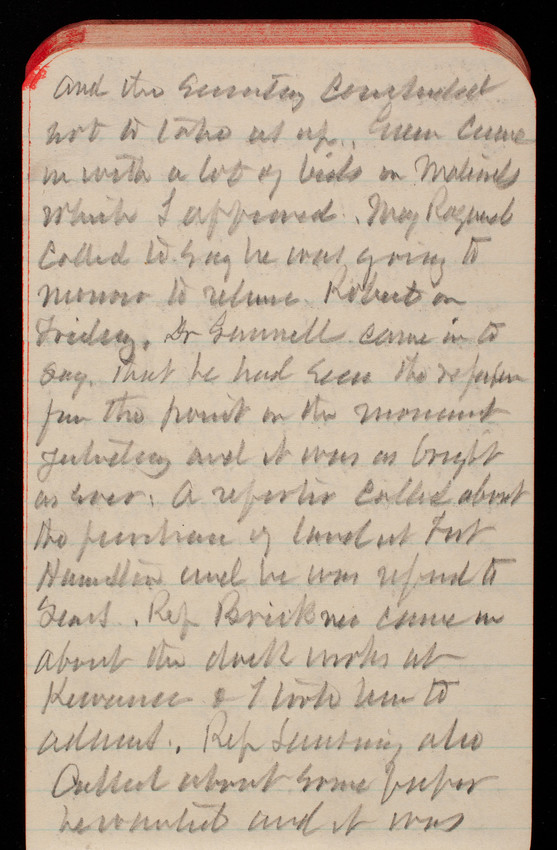 and the Secretary concluded
not to take it up. Green came
in with a lot of bids on Materials
which I approved. Maj
called to say he was going to
morrow to relieve Robert on
Friday. Dr Gunnell came in to
say that he had seen the
the point on the monument
yesterday and it was as bright
as ever. A reporter called about
the purchase of land at Fort
Hamilton and he was refered to
Sears. Rep Brickner came in
about the dock works at
Kewaunee & I took him to
adams. Rep also
Called about some paper
he wanted and it was